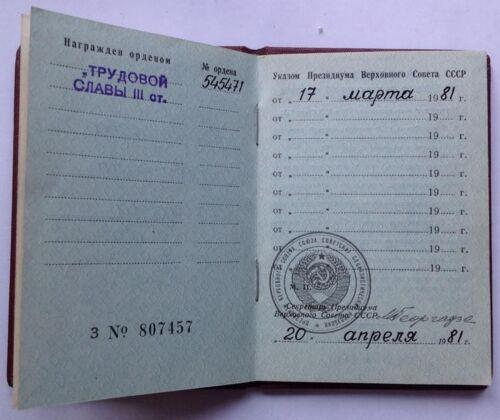 Награжден орденом
№ ордена
„ТРУДОВОЙ
СЛАВЫ III ст.
545471
З № 807457
Указом Президиума Верховного Совета СССР
от „ 17 " марта 1981 г.
от „ " 19 г.
от „ " 19 г.
от „ " 19 г.
от „ " 19 г.
от „ " 19 г.
от „ " 19 г.
от „ " 19 г.
от „ " 19 г.
от „ " 19 г.
М. П.
Секретарь Президиума
Верховного Совета СССР
М Георгадзе
„ 20 " апреля 1981 г.